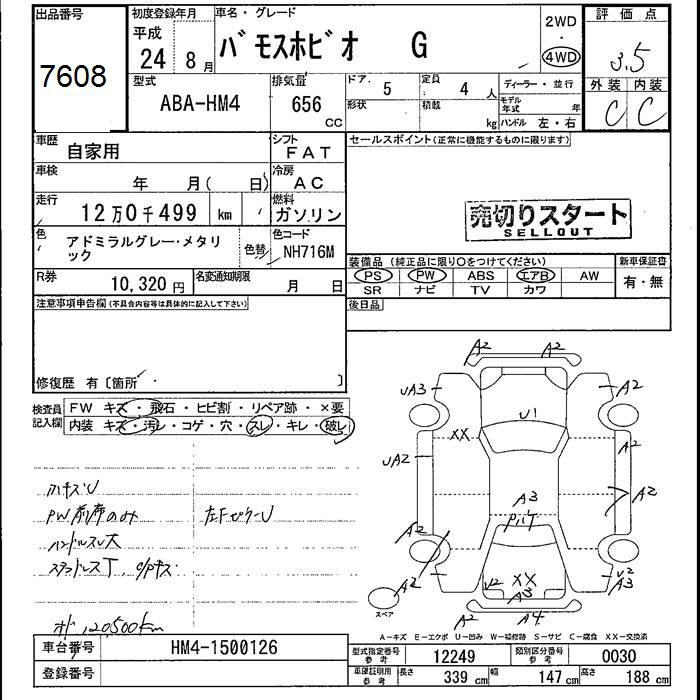 出品番号 初度登録年月 車名・グレード 2WD 評価点
7608 平成 24年 8月 バモスホビオ G 4WD 3.5
型式 排気量 ドア 5 定員 4人 ディーラー・並行 外装 内装
ABA-HM4 656 cc 形状 積載 kg モデル年式 年 ハンドル 左・右 C C
車歴 自家用 シフト FAT セールスポイント(正常に機能するものに限ります)
車検 年 月( 日) 冷房 AC
走行 12万0千499 km 燃料 ガソリン
売切りスタート
SELLOUT
色 アドミラルグレー・メタリック 色替 色コード NH716M
装備品(純正品に限り〇をつけてください) 新車保証書
PS PW ABS エアB AW 有・無
SR ナビ TV カワ
R券 10,320円 名変通知期限 月 日
後日品
注意事項申告欄(不具合内容等は具体的に記入して下さい)
修復歴 有〔箇所 〕
検査員記入欄 FW キズ・飛石・ヒビ割・リペア跡・×要
内装 キズ・汚レ・コゲ・穴・スレ・キレ・破レ
ハナキズU
PW前席のみ
ハンドルスレ大
120,500km
A2 A2
UA3 A2
U1
XX A2
UA2
A3 A2
A2
U2 XX U2
A2 A3 A3
スペア
A2 A4
A-キズ E-エクボ U-凹み W-補修跡 S-サビ C-腐食 XX-交換済
車台番号 HM4-1500126 型式指定番号 参考 12249 類別区分番号 参考 0030
登録番号 車庫証明用 参考 長さ 339 cm 幅 147 cm 高さ 188 cm